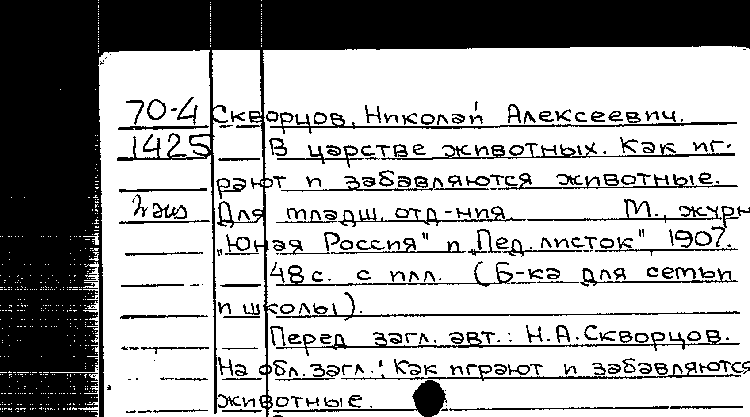 70-4 Скворцов, Николай Алексеевич.
1425 В царстве животных. Как иг-
рают и забавляются животные.
Для младш. отд-ния. М., журн
„Юная Россия" и „Пед. листок", 1907.
48 с. с илл. (Б-ка для семьи
и школы).
Перед загл. авт.: Н.А.Скворцов.
На обл. загл.: Как играют и забавляются
животные.